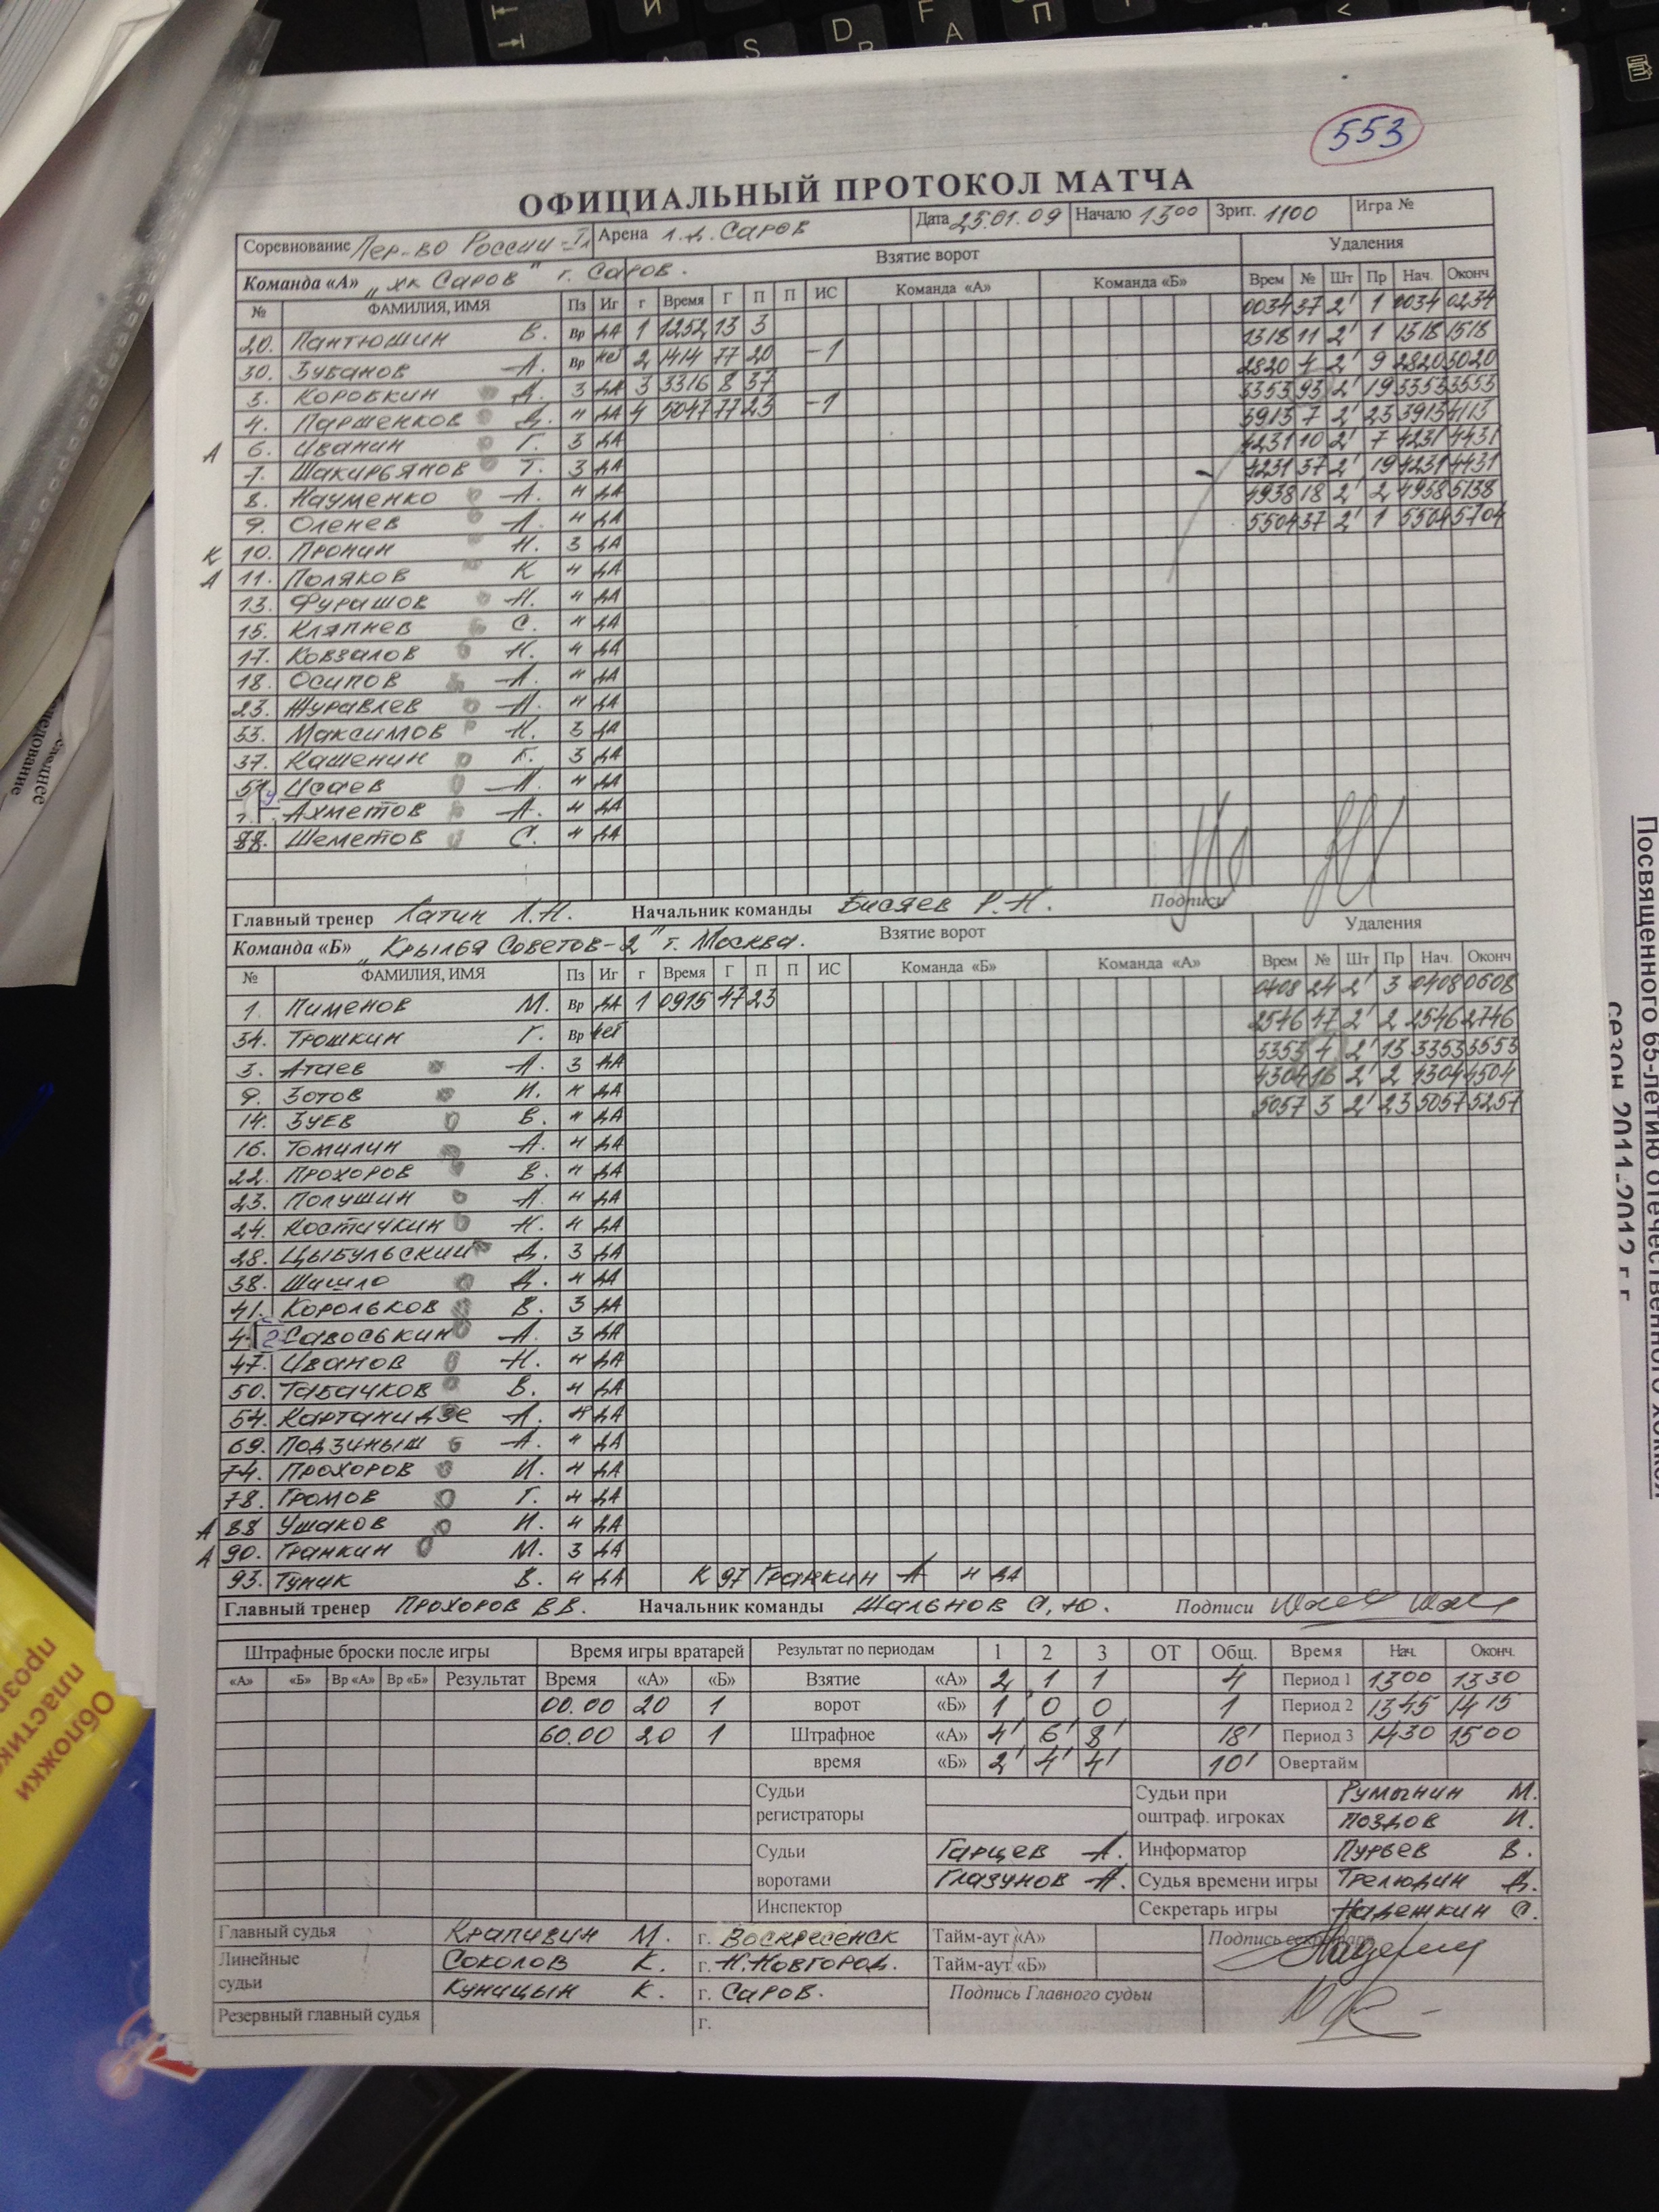 553
ОФИЦИАЛЬНЫЙ ПРОТОКОЛ МАТЧА
Соревнование Пер-во России- Арена л.д. Саров Дата 25.01.09 Начало 13 00 Зрит. 1100 Игра №
Команда «А» „хк Саров" г. Саров. Взятие ворот Удаления
№ ФАМИЛИЯ, ИМЯ Пз Иг г Время Г П П ИС Команда «А» Команда «Б» Врем № Шт Пр Нач. Оконч
0034 37 2' 1 0034 0234
20. Пантюшин В. Вр да 1 1252 13 3 1318 11 2' 1 1318 1518
30. Зубанов А. Вр нет 2 1414 77 20 -1 2820 4 2' 9 2820 3020
3. Коробкин Д. З да 3 3316 8 37 3353 93 2' 19 3353 3553
4. Паршенков Д. Н да 4 5047 77 23 -1 3913 7 2' 23 3913 4113
А 6. Иванин Г. З да 4231 10 2' 7 4231 4431
7. Шакирьянов Т. З да 4231 37 2' 19 4231 4431
8. Науменко А. Н да 4938 18 2' 2 4938 5138
9. Оленев А. Н да 5504 37 2' 1 5504 5704
К 10. Пронин Н. З да
А 11. Поляков К Н да
13. Фурашов Н. Н да
15. Кляпнев С. Н да
17. Ковзалов Н. Н да
18. Осипов А. Н да
23. Журавлев А. Н да
33. Максимов Н. З да
37. Кашенин Г. З да
Исаев А. Н да
Ахметов А. Н да
Шеметов С. Н да
Главный тренер Латин Л.Н. Начальник команды Бисяев Р.Н. Подписи
Команда «Б» „Крылья Советов-2" г. Москва. Взятие ворот Удаления
№ ФАМИЛИЯ, ИМЯ Пз Иг г Время Г П П ИС Команда «Б» Команда «А» Врем № Шт Пр Нач. Оконч
0408 24 2' 3 0408 0608
1. Пименов М. Вр да 1 0915 47 23 2546 47 2' 2 2546 2746
34. Трошкин Г. Вр нет 3353 4 2' 13 3353 3553
3. Атаев А. З да 4304 16 2' 2 4304 4504
9. Зотов И. Н да 5057 3 2' 23 5057 5257
14. Зуев В. Н да
16. Томилин А. Н да
22. Прохоров В. Н да
23. Полушин А. Н да
24. Костичкин Н. Н да
28. Цыбульский Д. З да
38. Шишло Д. Н да
41. Корольков В. З да
42 Савоськин А. З да
47. Иванов Н. Н да
50. Табачков В. Н да
54. Картанидзе А. Н да
69. Подзиныш А. Н да
74. Прохоров И. Н да
78. Громов Г. Н да
А 88 Ушаков И. Н да
А 90. Гранкин М. З да
93. Туник В. Н да К 97 Гранкин А Н да
Главный тренер Прохоров В В. Начальник команды Шальнов С.Ю. Подписи
Штрафные броски после игры Время игры вратарей Результат по периодам 1 2 3 ОТ Общ. Время Нач. Оконч.
«А» «Б» Вр «А» Вр «Б» Результат Время «А» «Б» Взятие «А» 2 1 1 4 Период 1 1300 1330
00.00 20 1 ворот «Б» 1 0 0 1 Период 2 1345 1415
60.00 20 1 Штрафное «А» 4' 6' 8' 18' Период 3 1430 1500
время «Б» 2' 4' 4' 10' Овертайм
Судьи Судьи при Румынин М.
регистраторы оштраф. игроках Поздов И.
Судьи Гарцев А. Информатор Пурьев В.
воротами Глазунов А. Судья времени игры Трелюдин Д.
Инспектор Секретарь игры Надежкин С.
Главный судья Крапивин М. г. Воскресенск Тайм-аут «А» Подпись секретаря
Линейные Соколов К. г. Н.Новгород. Тайм-аут «Б»
судьи Куницын К. г. Саров. Подпись Главного судьи
Резервный главный судья г.
Посвященного 65-летию отечественного хоккея
сезон 2011-2012 г г
Обложки
пластик
прозр